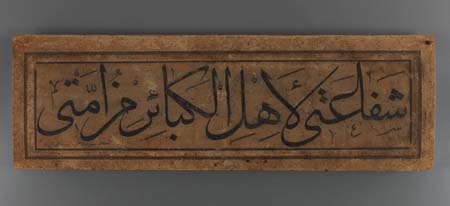 شفاعتى لاهل الكبائر من امتى